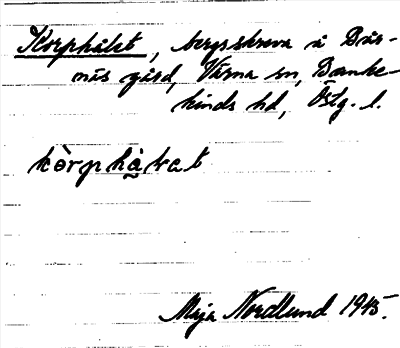 Korphålet, bergsskreva å Bås-
näs gård, Värna sn, Banke-
kinds hd, Östg. l.
kòrphạ̀lat
Maja Nordlund 1945.